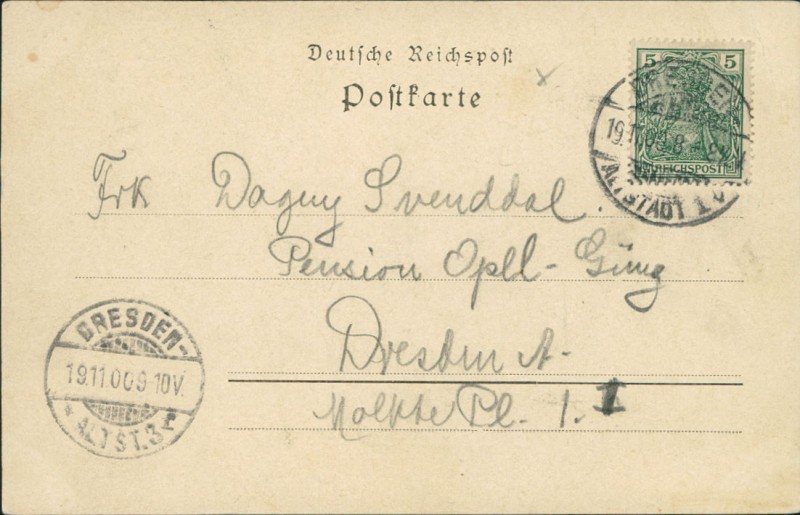 Deutsche Reichspost
Postkarte
5 5
REICHSPOST
DRESDEN
19.11.00. 8-9V
ALTSTADT 1
Frk Dagny Svenddal.
Pension Opll-Güng
Dresden A.
Moltke Pl. 1. I
DRESDEN-
19.11.00 9-10V.
* ALTST. 3 *